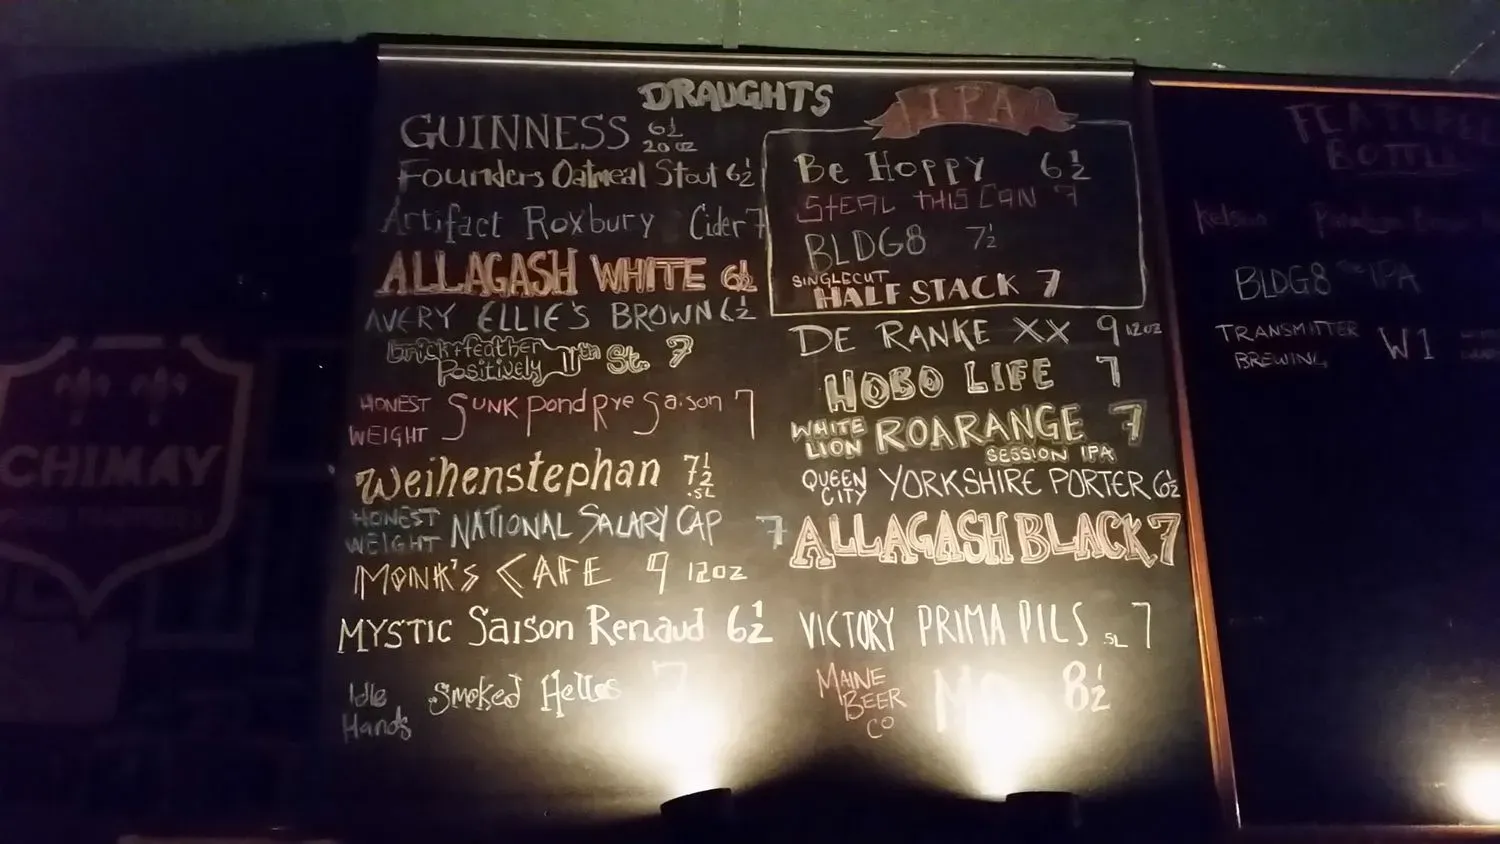 DRAUGHTS
GUINNESS 6½
20oz
Founders Oatmeal Stout 6½
Artifact Roxbury Cider 7
ALLAGASH WHITE 6½
AVERY ELLIE'S BROWN 6½
brick+feather
Positively 11th St. 7
HONEST
WEIGHT
Sunk Pond Rye Saison 7
Weihenstephan 7½
.5L
HONEST
WEIGHT
NATIONAL SALARY CAP 7
MONK'S CAFE 9 12oz
MYSTIC Saison Renaud 6½
Idle
Hands
Smoked Helles 7
IPA
Be Hoppy 6½
STEAL THIS CAN 7
BLDG8 7½
SINGLECUT
HALF STACK 7
DE RANKE XX 9 12oz
HOBO LIFE 7
WHITE
LION
ROARANGE 7
SESSION IPA
QUEEN
CITY
YORKSHIRE PORTER 6½
ALLAGASH BLACK 7
VICTORY PRIMA PILS .5L 7
MAINE
BEER
CO
8½
FEATURED
BOTTLE
BLDG8 IPA
TRANSMITTER
BREWING
W1
CHIMAY